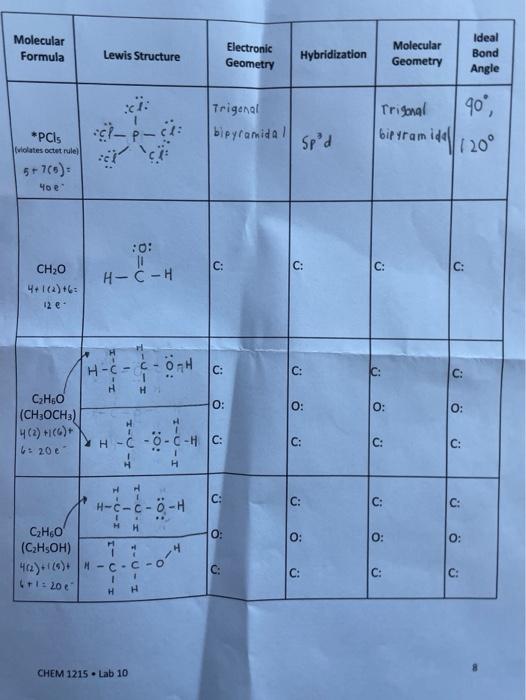 Molecular Formula
Lewis Structure
Electronic Geometry
Hybridization
Molecular Geometry
Ideal Bond Angle
*PCl5
(violates octet rule)
5+7(5)=
40 e-
:Cl:
:Cl - P - Cl:
:Cl Cl:
Trigonal
bipyramidal
sp³d
Trigonal
bipyramidal
90°,
120°
CH₂O
4+1(2)+6=
12 e-
:O:
H - C - H
C:
C:
C:
C:
C₂H₆O
(CH₃OCH₃)
4(2)+1(6)+
6=20e-
H H
H-C-C-O-H
H H
H H
H-C-O-C-H
H H
C:
O:
C:
C:
O:
C:
C:
O:
C:
C:
O:
C:
C₂H₆O
(C₂H₅OH)
4(2)+1(5)+
6+1=20e-
H H
H-C-C-O-H
H H
H H H
H-C-C-O
H H
C:
O:
C:
C:
O:
C:
C:
O:
C:
C:
O:
C:
CHEM 1215 • Lab 10
8